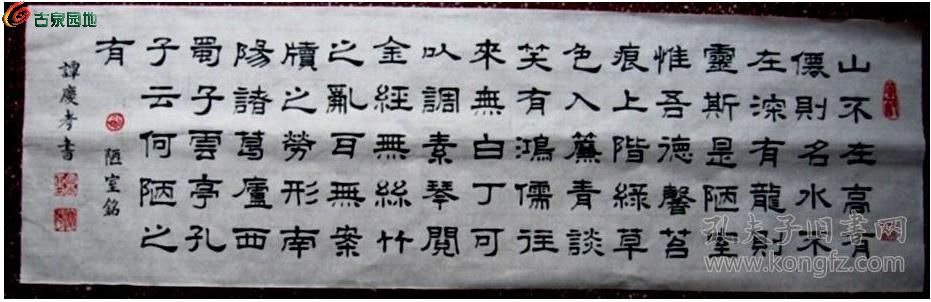 山不在高有
僊則名水不
在深有龍則
靈斯是陋室
惟吾德馨苔
痕上階綠草
色入簾青談
笑有鴻儒往
來無白丁可
以調素琴閱
金經無絲竹
之亂耳無案
牘之勞形南
陽諸葛廬西
蜀子雲亭孔
子云何陋之
有
陋室銘
譚慶孝書
古泉园地
孔夫子旧书网
www.kongfz.com